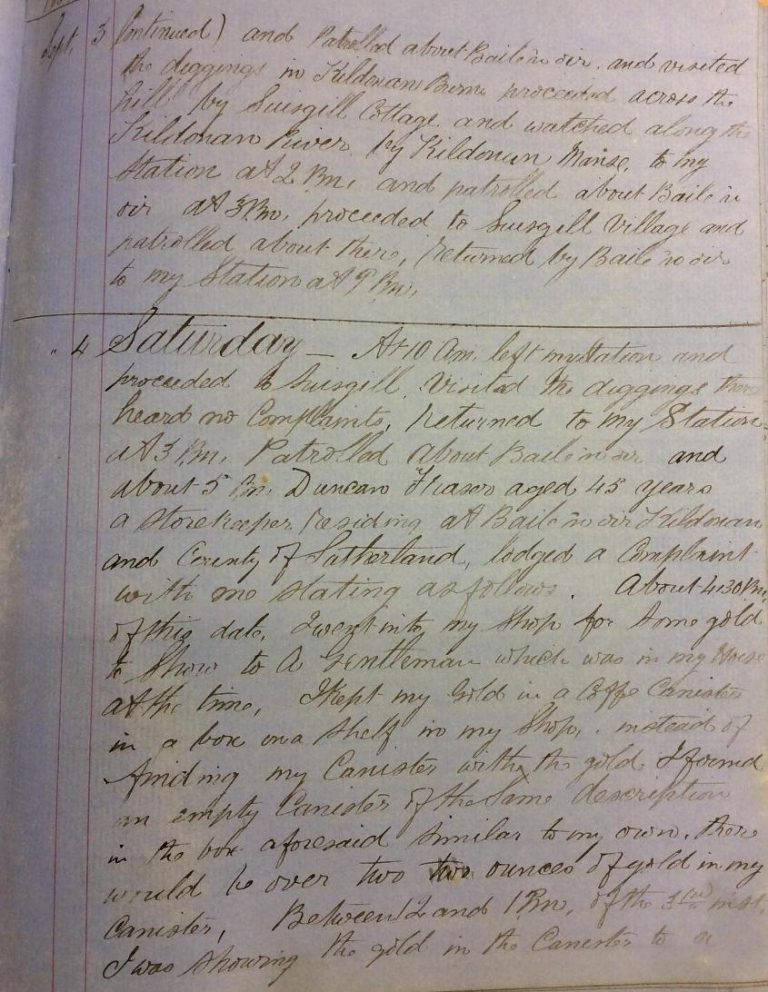 Sept. 3 Continued) and Patrolled about Baile n oir. and visited
the diggings in Kildonan Burn proceeded across the
hill by Suisgill Cottage and watched along the
Kildonan River by Kildonan Manse, to my
Station at 2 Pm, and patrolled about Baile n
oir at 3 Pm, proceeded to Suisgill Village and
patrolled about there, Returned by Baile n oir
to my Station at 9 Pm,
" 4 Saturday — At 10 Am, left my Station and
proceeded to Suisgill, Visited the diggings there
heard no Complaints, Returned to my Station
at 3 Pm, Patrolled about Baile n oir and
about 5 Pm, Duncan Fraser aged 45 years
a Storekeeper, residing at Baile n oir Kildonan
and County of Sutherland, lodged a Complaint
with me stating as follows. About 4.30 Pm,
of this date, I went into my Shop for Some gold
to Show to A Gentleman which was in my House
at the time, I Kept my Gold in a Coffe Canister
in a box on a Shelf in my Shop, instead of
finding my Canister with the gold I found
an empty Canister of the Same description
in the box aforesaid similar to my own. there
would be over two ounces of gold in my
Canister, Between 12 and 1 Pm, of the 3rd inst,
I was showing the gold in the Canister to a